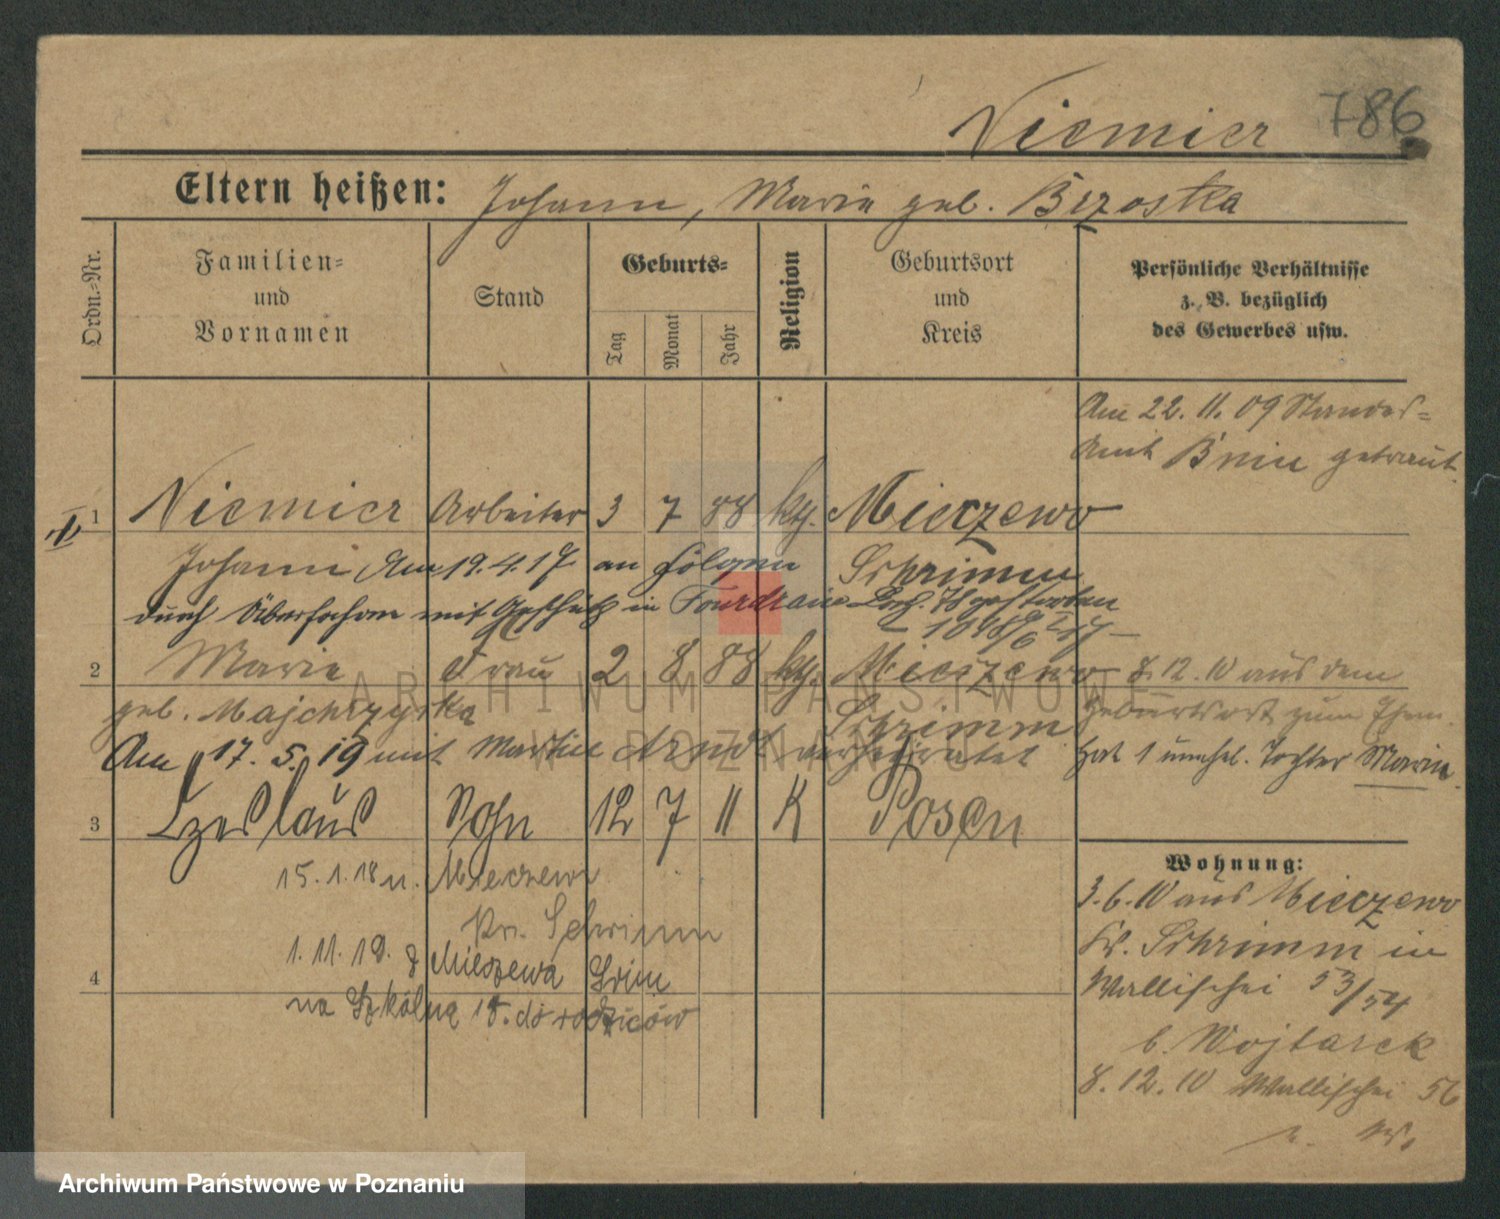 786
Niemier
Eltern heißen: Johann, Marie geb. Brzostka
Ordn.-Nr.
Familien-
und
Vornamen
Stand
Geburts-
Tag
Monat
Jahr
Religion
Geburtsort
und
Kreis
Persönliche Verhältnisse
z. B. bezüglich
des Gewerbes usw.
Am 22. 11. 09 Standes-
Amt Bnin getraut
1 Niemier Arbeiter 3 7 88 kth. Mieczewo
Johann Am 19.4.17 an Folgen Schrimm
durch mit Geschütz in gestorben
2 Marie Frau 2 8 88 kth. Mieczewo
geb. Majchrzycka Schrimm
8.12.10 aus dem
Geburtsort zum Ehem.
Am 17. 5. 19 mit Martin Arndt verheiratet
Hat 1 unehel. Tochter Marie
3 Czeslaus Sohn 12 7 11 K Posen
15. 1. 18 n. Mieczewo
Kr. Schrimm
1. 11. 19. z Mieczewa Śrim
4
na Szkólną 18. do rodziców
Wohnung:
3.6.10 aus Mieczewo
Kr. Schrimm in
Wallischei 53/54
b. Wojtasek
8. 12. 10 Wallischei 56
ARCHIWUM PAŃSTWOWE
W POZNANIU
Archiwum Państwowe w Poznaniu